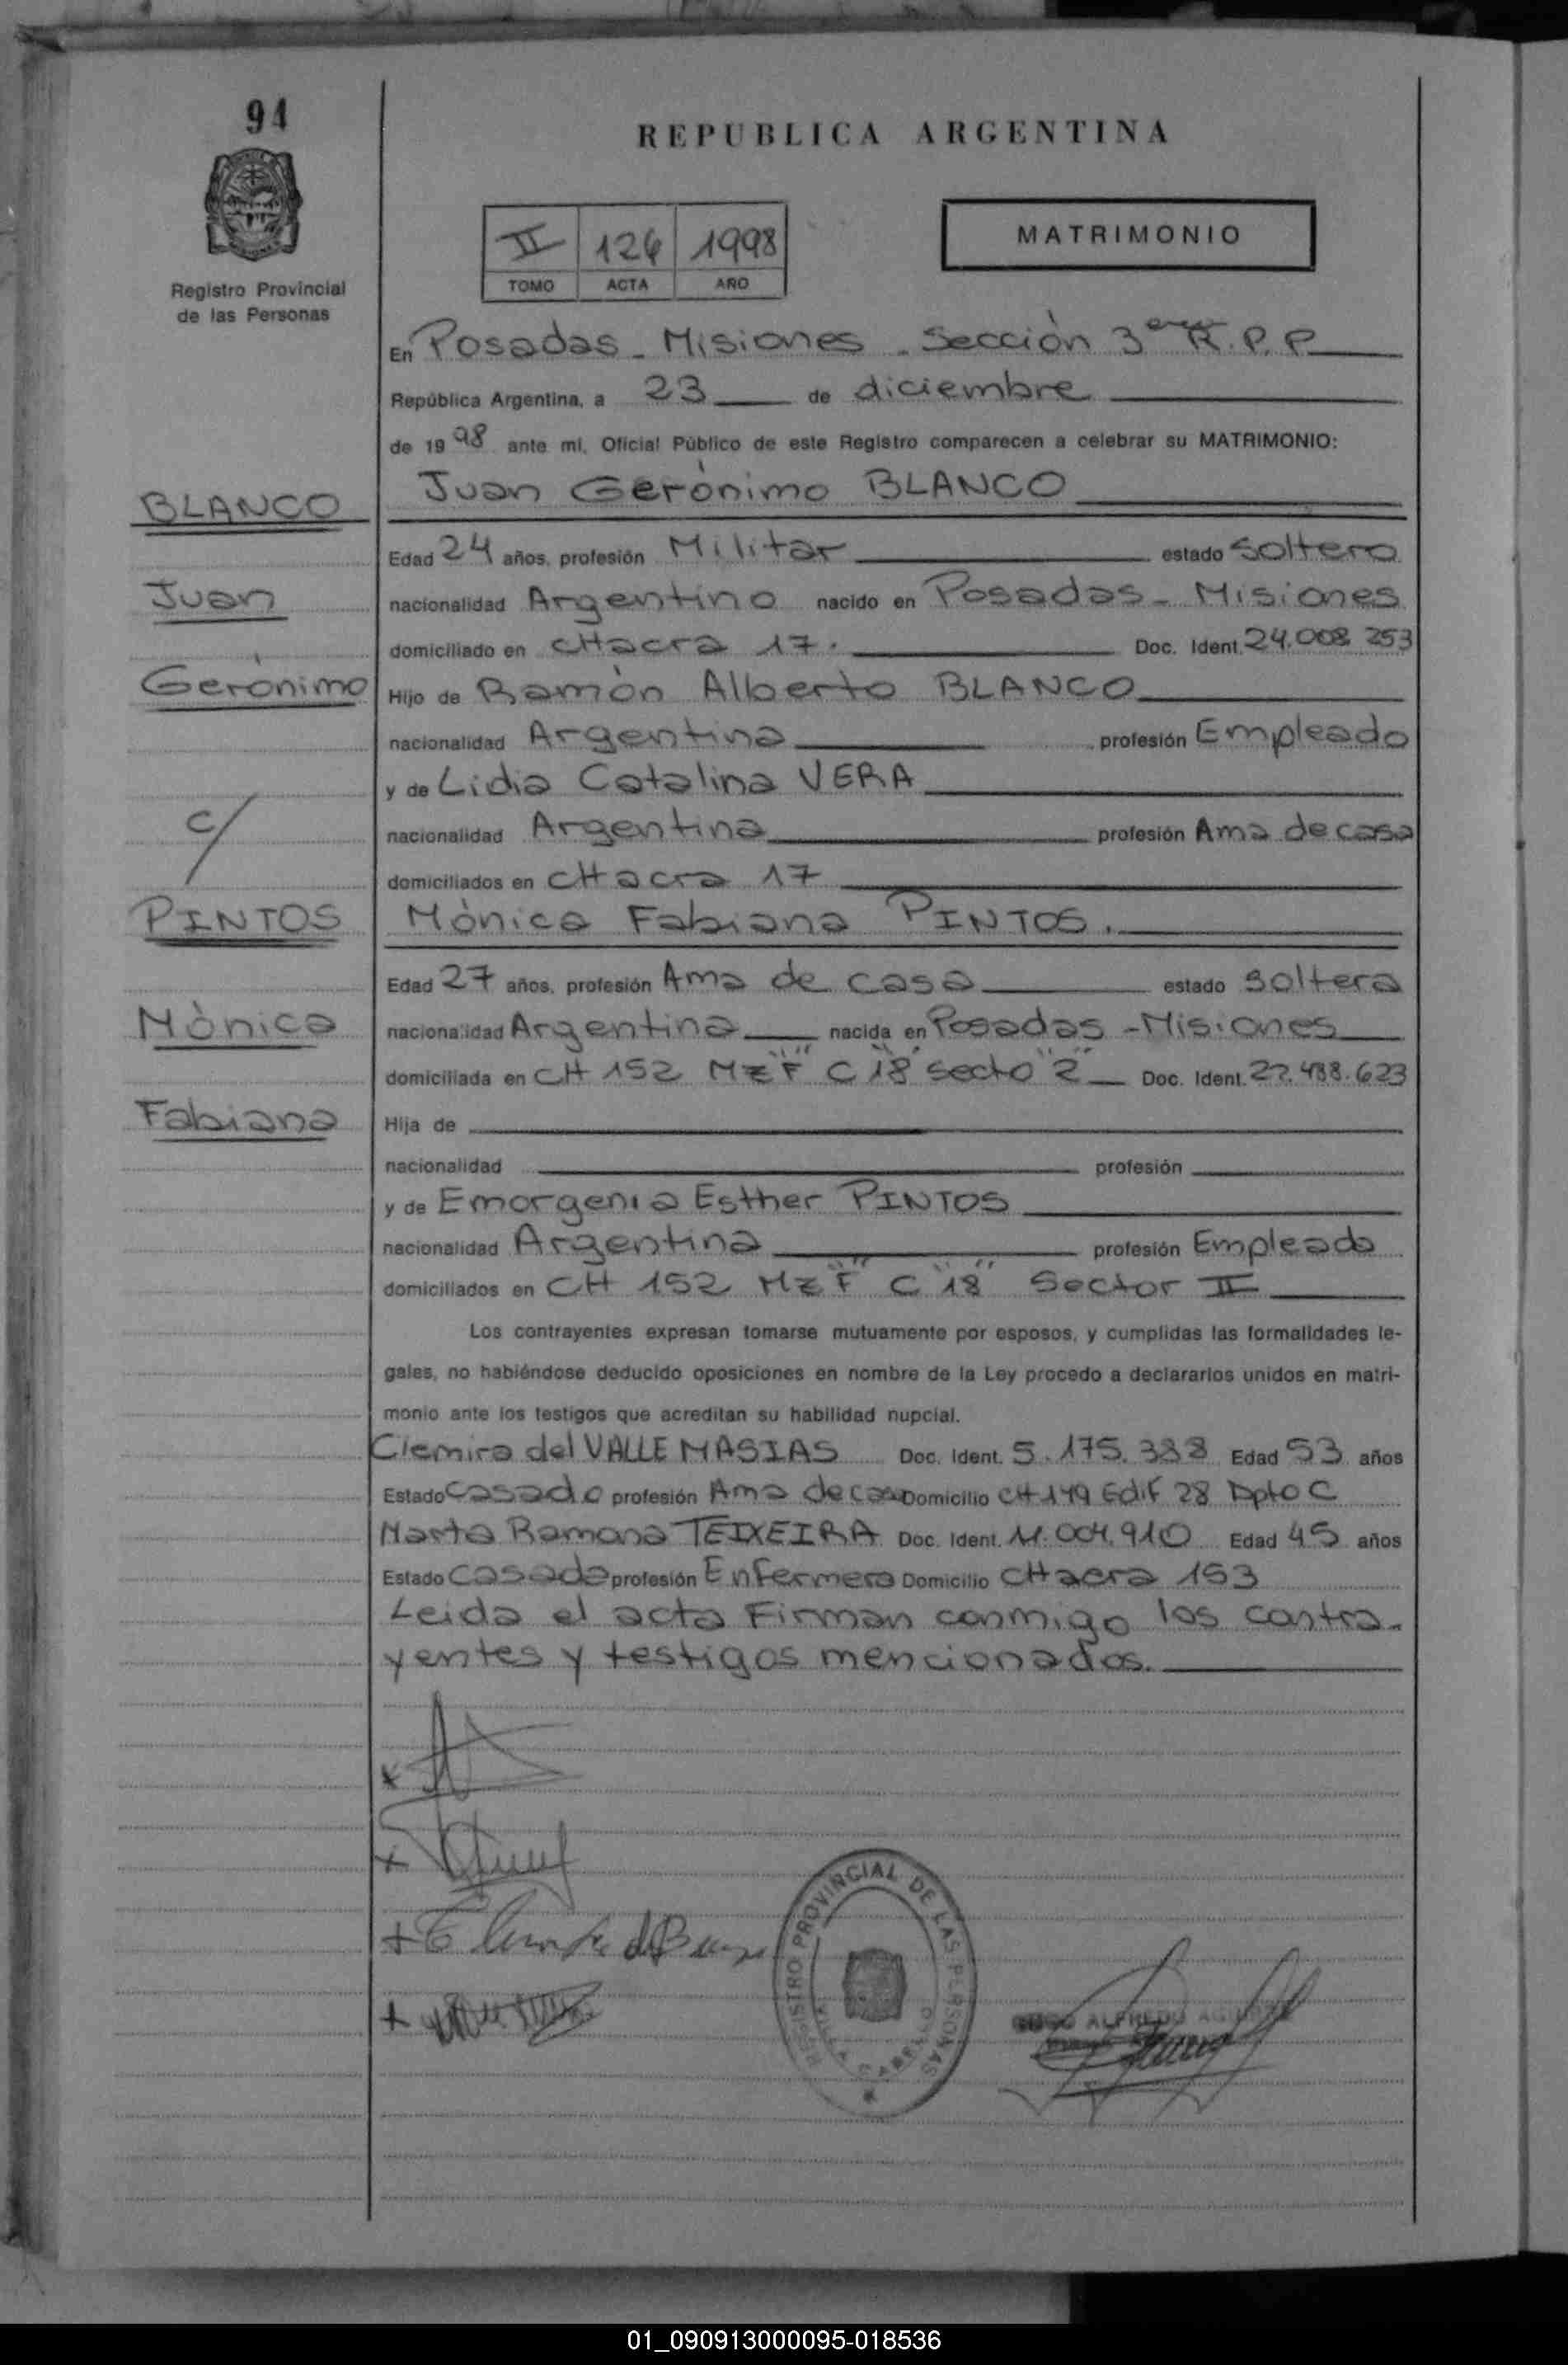 94
REPUBLICA ARGENTINA
II 124 1998
TOMO ACTA AÑO
MATRIMONIO
Registro Provincial
de las Personas
En Posadas - Misiones - Sección 3era R.P.P
República Argentina, a 23 de diciembre
de 1998 ante mi, Oficial Público de este Registro comparecen a celebrar su MATRIMONIO:
BLANCO
Juan Gerónimo BLANCO
Edad 24 años, profesión Militar estado soltero
Juan
nacionalidad Argentino nacido en Posadas - Misiones
domiciliado en cHacra 17. Doc. Ident. 24.008.253
Gerónimo
Hijo de Ramón Alberto BLANCO
nacionalidad Argentina profesión Empleado
y de Lidia Catalina VERA
c/
nacionalidad Argentina profesión Ama de casa
domiciliados en cHacra 17
PINTOS
Mónica Fabiana PINTOS.
Edad 27 años, profesión Ama de casa estado soltera
Mónica
nacionalidad Argentina nacida en Posadas - Misiones
domiciliada en CH 152 Mz "F" C "18" secto "2" Doc. Ident. 22.438.623
Fabiana
Hija de
nacionalidad profesión
y de Emorgenia Esther PINTOS
nacionalidad Argentina profesión Empleada
domiciliados en CH 152 Mz "F" C "18" Sector II
Los contrayentes expresan tomarse mutuamente por esposos, y cumplidas las formalidades le-
gales, no habiéndose deducido oposiciones en nombre de la Ley procedo a declararlos unidos en matri-
monio ante los testigos que acreditan su habilidad nupcial.
Clemira del VALLE MASIAS Doc. Ident. 5.175.388 Edad 53 años
Estado casada profesión Ama de casa Domicilio CH 149 Edif 28 Dpto C
Marta Ramona TEIXEIRA Doc. Ident. 11.004.910 Edad 45 años
Estado casada profesión Enfermera Domicilio cHacra 153
Leida el acta Firman conmigo los contra-
yentes y testigos mencionados.
REGISTRO PROVINCIAL DE LAS PERSONAS
ALFREDO
01_090913000095-018536